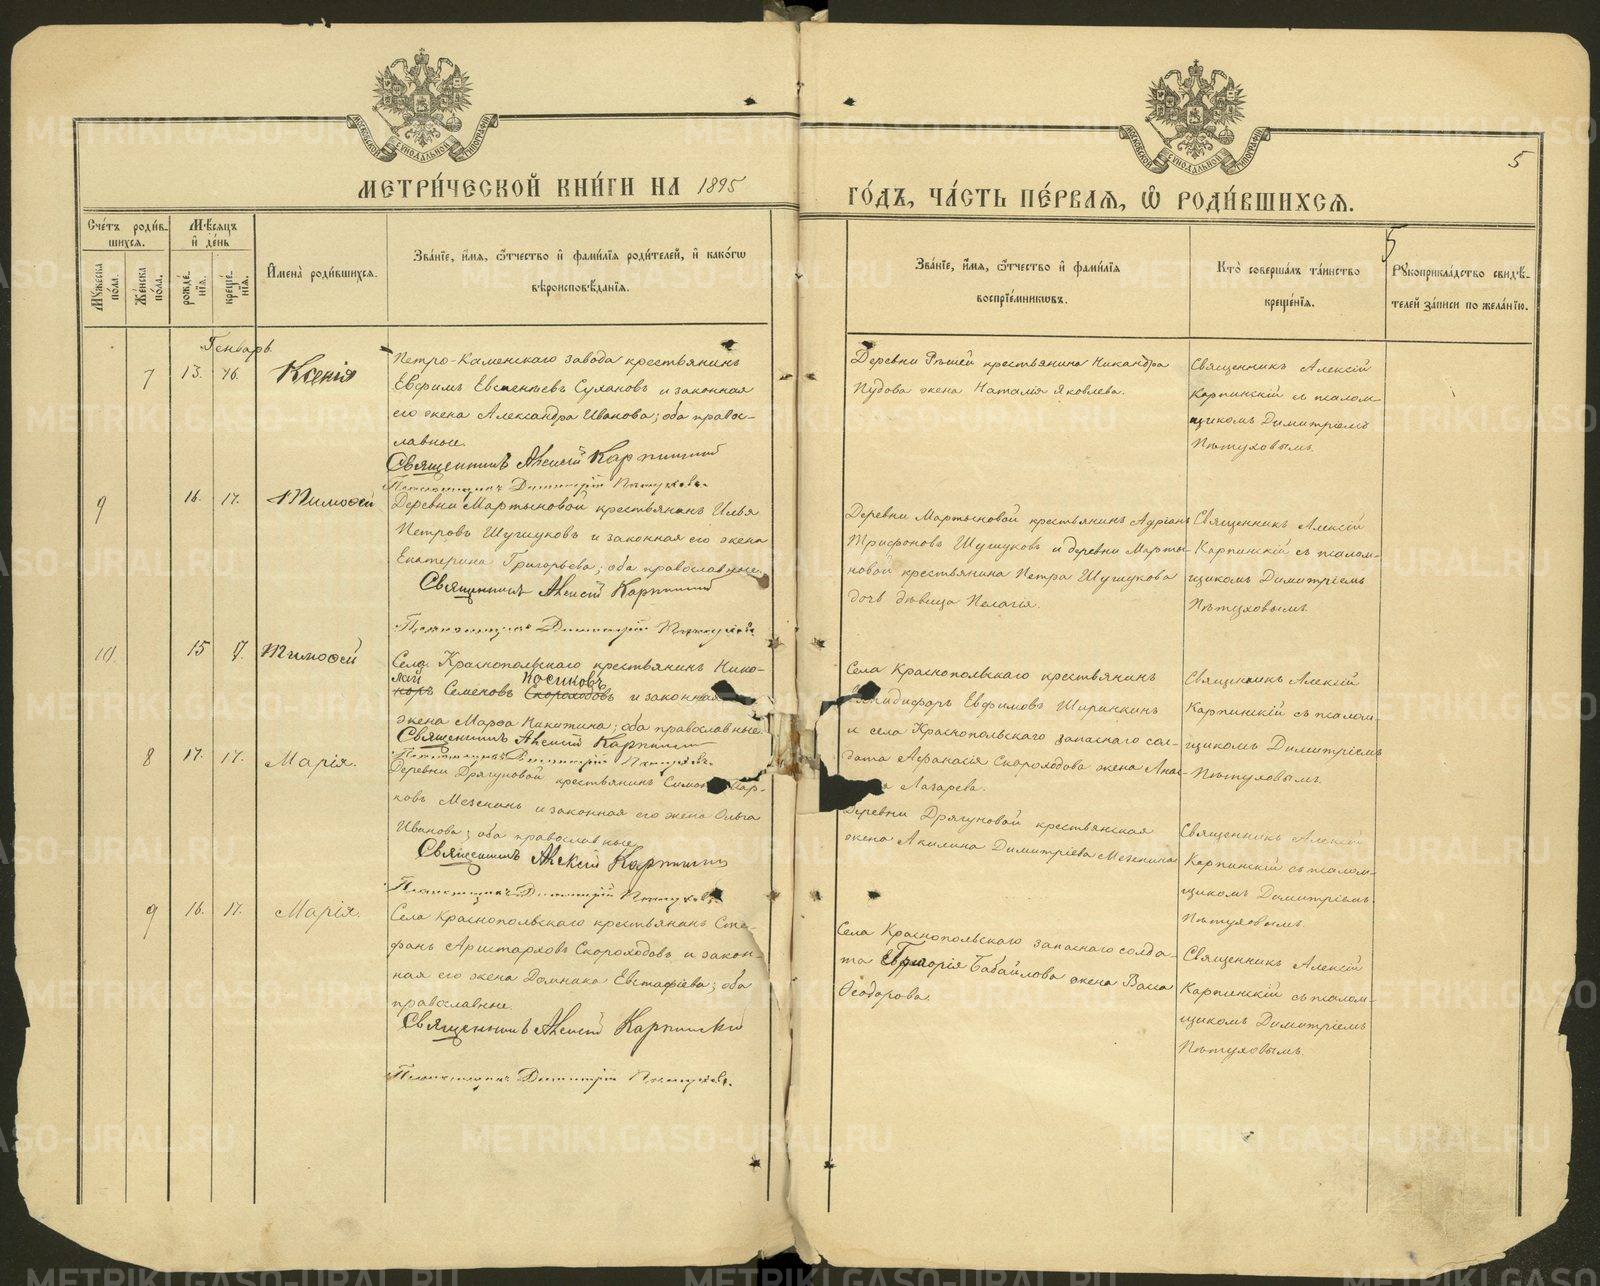 МЕТРИ́ЧЕСКОЙ КНИ́ГИ НА 1895
ГО́ДЪ, ЧА́СТЬ ПЕ́РВАѦ, Ѡ РОДИ́ВШИХСѦ.
5
Сче́тъ роди́в-
шихся.
Мѣ́сяцъ
и де́нь
Му́жеска по́ла.
Же́нска по́ла.
рожде́нїя.
креще́нїя.
И҆мена̀ роди́вшихся.
Зва́нїе, и҆́мя, ѻ҆́тчество и҆ фами́лїя роди́телей, и҆ како́гѡ
вѣроисповѣ́данїя.
Зва́нїе, и҆́мя, ѻ҆́тчество и҆ фами́лїя
воспрїе́мникѡвъ.
Кто̀ соверша́лъ та́инство
креще́нїя.
5
Рꙋкоприкла́дство свидѣ́-
телей за́писи по жела́нїю.
Генварь
7 13. 16. Ксенія
Петро-Каменскаго завода крестьянинъ
Евфимъ Евсентьевъ Сулановъ и законная
его жена Александра Иванова; оба правос-
лавные.
Священникъ Алексій Карпинскій
Псаломщикъ Димитрій Пѣтуховъ.
Деревни крестьянина Никандра
Пудова жена Наталія Яковлева.
Священникъ Алексій
Карпинскій съ псалом-
щикомъ Димитріемъ
Пѣтуховымъ.
9 16. 17. Тимоѳей
Деревни Мартыновой крестьянинъ Илья
Петровъ Шушуковъ и законная его жена
Екатерина Григорьева; оба православные.
Священникъ Алексій Карпинскій
Псаломщикъ Димитрій Пѣтуховъ
Деревни Мартыновой крестьянинъ Адріанъ
Трифоновъ Шушуковъ и деревни Марты-
новой крестьянина Петра Шушукова
дочь дѣвица Пелагія.
Священникъ Алексій
Карпинскій съ псалом-
щикомъ Димитріемъ
Пѣтуховымъ
10. 15 17. Тимоѳей
Села Краснопольскаго крестьянинъ Нико-
лай Косиковъ
норъ Семеновъ Скороходовъ и законная
жена Марѳа Никитина; оба православные.
Священникъ Алексій Карпинскій
Псаломщикъ Димитрій Пѣтуховъ.
Села Краснопольскаго крестьянинъ
Евфимовъ Ширинкинъ
и села Краснопольскаго запаснаго сол-
дата Аѳанасія Скороходова жена Анас-
Лазарева.
Священникъ Алексій
Карпинскій съ псалом-
щикомъ Димитріемъ
Пѣтуховымъ.
8 17. 17. Марія.
Деревни Дрягуновой крестьянинъ Симонъ Мар-
ковъ Мезенинъ и законная его жена Ольга
Иванова; оба православные
Священникъ Алексій Карпинскій
Псаломщикъ Димитрій Пѣтуховъ.
Деревни Дрягуновой крестьянская
жена Акилина Димитріева Мезенина
Священникъ Алексій
Карпинскій съ псалом-
щикомъ Димитріемъ
Пѣтуховымъ.
9 16. 17. Марія.
Села Краснопольскаго крестьянинъ Сте-
фанъ Аристарховъ Скороходовъ и закон-
ная его жена Домника Евстафіева; оба
православные.
Священникъ Алексій Карпинскій
Псаломщикъ Димитрій Пѣтуховъ.
Села Краснопольскаго запаснаго солда-
та Григорія Бабайлова жена Васса
Ѳеодорова.
Священникъ Алексій
Карпинскій съ псалом-
щикомъ Димитріемъ
Пѣтуховымъ.
METRIKI.GASO-URAL.RU